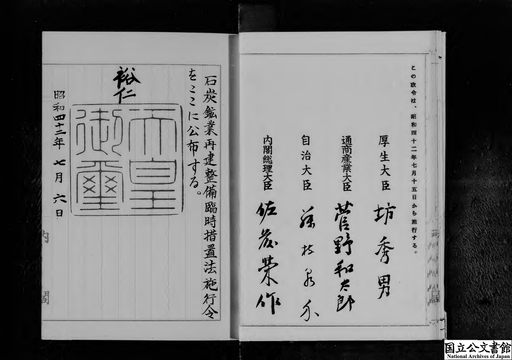 この政令は、昭和四十二年七月十五日から施行する。
厚生大臣 坊秀男
通商産業大臣 菅野和太郎
自治大臣 藤枝泉介
内閣総理大臣 佐藤栄作
石炭鉱業再建整備臨時措置法施行令
をここに公布する。
裕仁
天皇
御璽
昭和四十二年七月六日
内閣
国立公文書館
National Archives of Japan